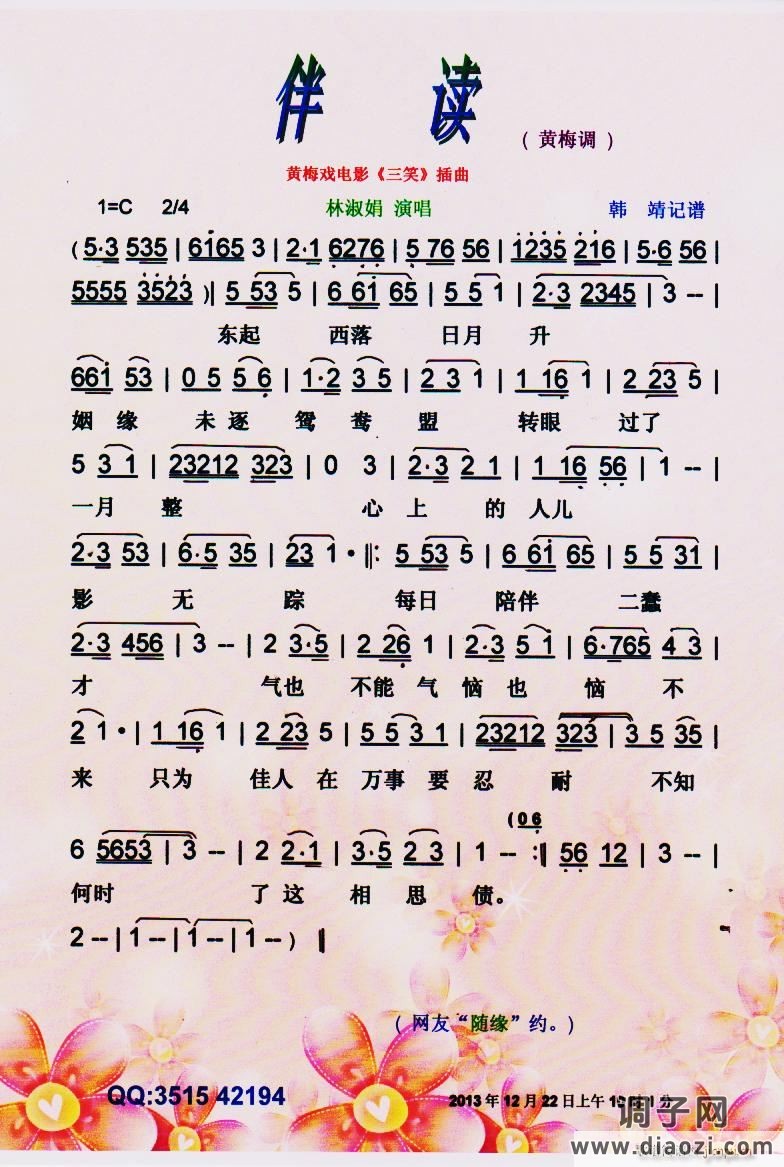 伴 读
( 黄梅调 )
黄梅戏电影《三笑》插曲
1=C 2/4 林淑娟 演唱 韩 靖记谱
( 5·3 535 | 6165 3 | 2·1 6276 | 5 76 56 | 1235 216 | 5·6 56 |
5555 3523 )| 5 53 5 | 6 61 65 | 5 5 1 | 2·3 2345 | 3 -- |
东起 西落 日月 升
661 53 | 0 5 5 6 | 1·2 3 5 | 2·3 1 | 1 16 1 | 2 23 5 |
姻缘 未逐 鸳鸯 盟 转眼 过了
5 3 1 | 23212 323 | 0 3 | 2·3 2 1 | 1 16 56 | 1 -- |
一月 整 心上 的 人儿
2·3 53 | 6·5 35 | 23 1 · ‖: 5 53 5 | 6 61 65 | 5 5 31 |
影 无 踪 每日 陪伴 二蠢
2·3 456 | 3 -- | 2 3·5 | 2 26 1 | 2·3 5 1 | 6·765 4 3 |
才 气也 不能 气 恼也 恼 不
2 1 · | 1 16 1 | 2 23 5 | 5 5 3 1 | 23212 323 | 3 5 35 |
来 只为 佳人 在 万事 要 忍 耐 不知
(0 6
6 5653 | 3 -- | 2 2·1 | 3·5 2 3 | 1 -- :‖ 56 12 | 3 -- |
何时 了这 相思 债。
2 -- | 1 -- | 1 -- | 1 -- ) ‖
( 网友“随缘”约。)
QQ:3515 42194
2013 年 12 月 22 日上午
调子网
www.diaozi.com